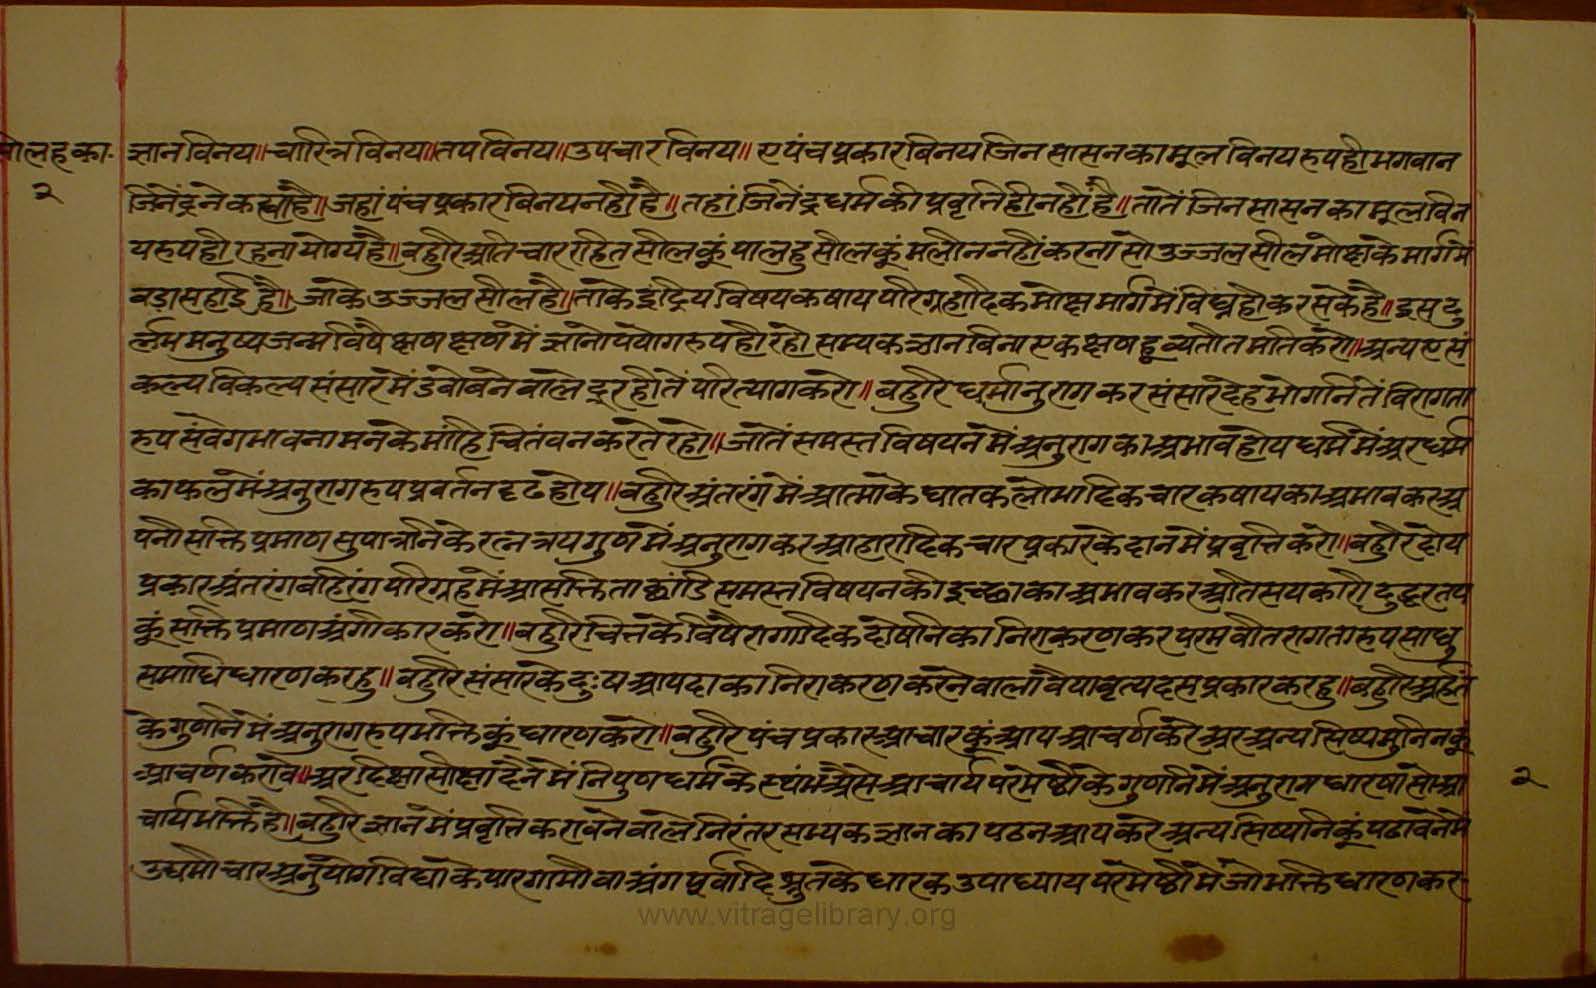 सोलह का.
२
ज्ञान विनय॥ चारित्र विनय॥ तप विनय॥ उपचार विनय॥ ए पंच प्रकार विनय जिन सासन का मूल विनय रुप ही भगवान
जिनेंद्र ने कह्या है॥ जहां पंच प्रकार विनय नही है॥ तहां जिनेंद्र धर्म की प्रवृत्ति ही नही है॥ तातें जिन सासन का मूल विन
य रुप ही रहना योग्य है॥ बहुरि अतिचार रहित सील कूं पालहु सील कूं मलीन नहीं करना सो उज्जल सील मोक्ष के मार्ग मे
बडा सहाई है॥ जाके उज्जल सील है॥ ताके इंद्रिय विषय कषाय परिग्रहादिक मोक्ष मार्ग में विघ्न न कर सके है॥ इस दु
र्लभ मनुष्य जन्म विषै क्षण क्षण में ज्ञानोपयोग रुप ही रहो सम्यक ज्ञान बिना एक क्षण हू व्यतीत मति करो॥ अन्य ए सं
कल्प विकल्प संसार में डबोबने वाले दूर ही तें परित्याग करो॥ बहुरि धर्मानुराग कर संसार देह भोगनि तें विरागता
रुप संवेग भावना मन के मांहि चिंतवन करते रहो॥ जातें समस्त विषयन में अनुराग का अभाव होय धर्म में अर धर्म
का फल में अनुराग रुप प्रवर्तन दृढ होय॥ बहुरि अंतरंग में आत्मा के घातक लोभादिक चार कषाय का अभाव कर अ
पनी सक्ति प्रमाण सुपात्रनि के रत्नत्रय गुण में अनुराग कर आहारादिक चार प्रकार के दान में प्रवृत्ति करो॥ बहुरि दोय
प्रकार अंतरंग बहिरंग परिग्रह में आसक्तिता छांडि समस्त विषयन की इच्छा का अभाव कर अतिसय कारी दुद्धर तप
कूं सक्ति प्रमाण अंगीकार करो॥ बहुरि चित्त के विषै रागादिक दोषनि का निराकरण कर परम वीतरागता रुप साधु
समाधि धारण करहु॥ बहुरि संसार के दुःष आपदा का निराकरण करने वाला वैयावृत्य दस प्रकार करहु॥ बहुरि अर्हंत
के गुणनि में अनुराग रुप भक्ति कूं धारण करो॥ बहुरि पंच प्रकार आचार कूं आप आचर्ण करे अर अन्य सिष्य मुनिन कूं
आचर्ण करावे॥ अर दिक्षा सीक्षा देने में निपुण धर्म के स्थंभ ऐसे आचार्य परमेष्ठी के गुणनि में अनुराग धारणा सो आ
चार्य भक्ति है॥ बहुरि ज्ञान में प्रवृत्ति करावने वाले निरंतर सम्यक ज्ञान का पठन आप करे अन्य सिष्यनि कूं पढावने मे
उद्यमी चार अनुयोग विद्या के पारगामी वा अंग पूर्वादि श्रुत के धारक उपाध्याय परमेष्ठी मे जो भक्ति धारण कर-
२
www.vitragelibrary.org